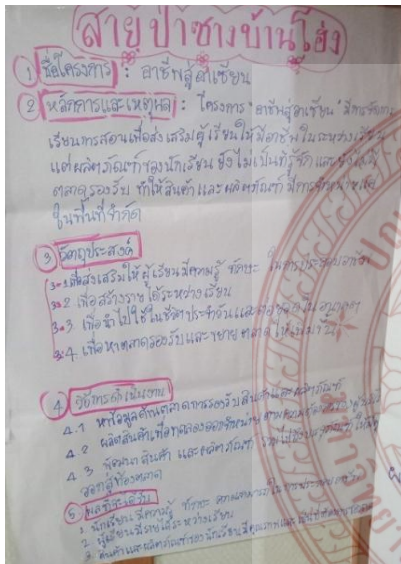 สายป่าซางบ้านโฮ่ง
① ชื่อโครงการ : อาชีพสู่อาเซียน
② หลักการและเหตุผล : โครงการ "อาชีพสู่อาเซียน" มีการจัดการ
เรียนการสอนเพื่อส่งเสริมผู้เรียนให้มีอาชีพในระหว่างเรียน
แต่ผลิตภัณฑ์ของนักเรียน ยังไม่เป็นที่รู้จัก และยังไม่มี
ตลาดรองรับ ทำให้สินค้า และผลิตภัณฑ์ มีการจำหน่าย
ในพื้นที่จำกัด
③ วัตถุประสงค์
3.1 เพื่อส่งเสริมให้ผู้เรียนมีความรู้ ทักษะ ในการประกอบอาชีพ
3.2 เพื่อสร้างรายได้ระหว่างเรียน
3.3 เพื่อนำไปใช้ในชีวิตประจำวันและต่อยอดใน อนาคต
3.4 เพื่อหาตลาดรองรับและขยายตลาด
④ วิธีการดำเนินงาน
4.1 หาข้อมูลด้านตลาดการรองรับสินค้าและผลิตภัณฑ์
4.2 ผลิตสินค้าเพื่อทดลองออกจำหน่าย
4.3 พัฒนาสินค้า และผลิตภัณฑ์
ออกสู่ท้องตลาด
⑤ ผลที่จะได้รับ
1. นักเรียนมีความรู้ ทักษะ ความสามารถในการประกอบอาชีพ
2. ผู้เรียนมีรายได้ระหว่างเรียน
3. สินค้าและผลิตภัณฑ์ของนักเรียนมีคุณภาพ